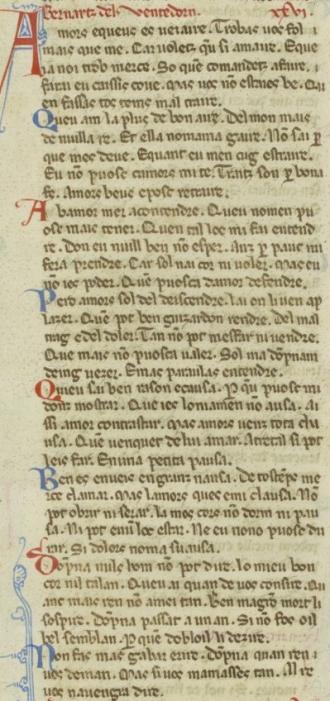 Bernart del Ventedorn. XXVI.
Amors equeus es ueiaire. Trobaz uos fol
mais que me. Car uolez qu si amaire. Eque
ia noi trob merce. So que comandez afaire.
farai en caissis coue. Mas uos nō estaus be. Qui
en fassaz toz temз mal traire.
Queu am la plus de bon aire. Del mon mais
de nuilla re. Et ella nomama gaire. Nō sai p
que mes deue. Equant eu men cug estraire.
Eu nō puosc camors mi te. Traiz son p bona
fe. Amors beus eposc retraire.
Ab amor mer acontendre. Queu nomen pu
osc mais tener. Quen tal loc mi fai entend
re. Don eu nuill ben nō esper. Anz p pauc mi
fera prendre. Car sol nai cor ni uoler. Mas eu
nō ies poder. Que puosca damor defendre.
Pero amors sol deiscendre. Lai on li uen ap
lazer. Que pot ben guizardon rendre. Del mal
trag e del doler. Tan nō pot mesfar ni uendre.
Que mais nō puosca ualer. Sol ma dōpnam
deing uezer. Emas paraulas entendre.
Queu sai ben rason ecausa. P que puosc mi
donz mostrar. Que ies loniamen nō ausa. Ai
ssi amor contrastar. Mas amors uenz tota cha
usa. Que uenquet de lui amar. Atretal si pot
leis far. En una petita pausa.
Ben es enueis en grant nausa. De toztēps me
rce clamar. Mas lamors ques em mi clausa. Nō
pot obrir ni serar. La mos cors nō dorm ni pau
sa. Ni pot en un loc estar. Ne eu nono puosc du
rar. Si dolors noma suausa.
Dōpna mils hom nō pot dire. lo mieu bon
cor nil talan. Queu ai quan de uos consire. Qu
anc mais ren nō amei tan. Ben magron mort li
sospire. dōpna passat a un an. Si nō fos oil
bel semblan. P que doblon li dezire.
Non faz mas gabar erire. dōpna quan ren i
uos deman. Mas si uos mamassez tan. Al re
uos nauengra dire.